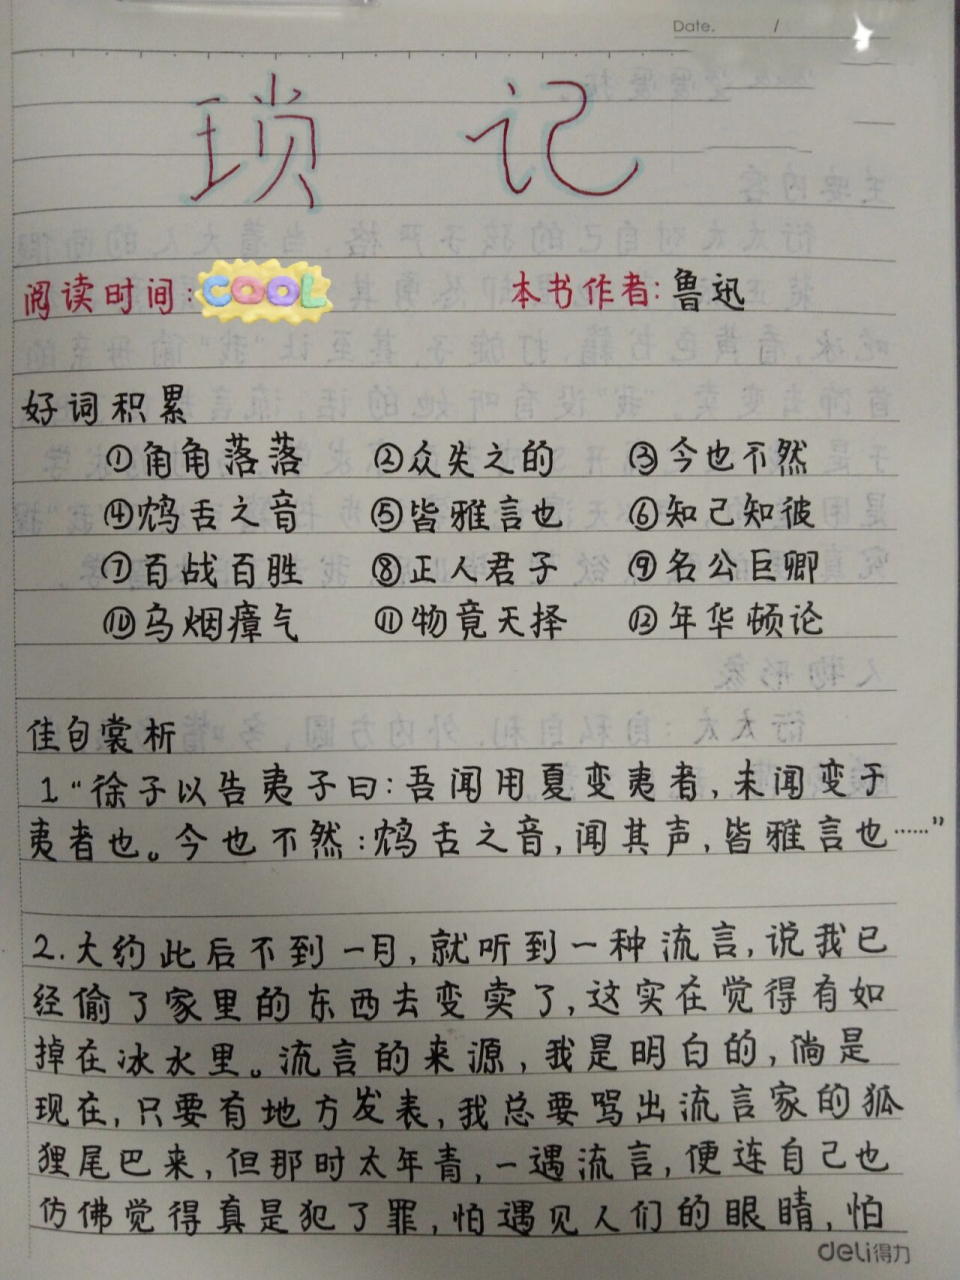 Date. /
琐 记
阅读时间: COOL 本书作者: 鲁迅
好词积累
①角角落落 ②众失之的 ③今也不然
④鴂舌之音 ⑤皆雅言也 ⑥知己知彼
⑦百战百胜 ⑧正人君子 ⑨名公巨卿
⑩乌烟瘴气 ⑪物竟天择 ⑫年华顿论
佳句赏析
1“徐子以告夷子曰:吾闻用夏变夷者,未闻变于
夷者也。今也不然:鴂舌之音,闻其声,皆雅言也……”
2.大约此后不到一月,就听到一种流言,说我已
经偷了家里的东西去变卖了,这实在觉得有如
掉在冰水里。流言的来源,我是明白的,倘是
现在,只要有地方发表,我总要骂出流言家的狐
狸尾巴来,但那时太年青,一遇流言,便连自己也
仿佛觉得真是犯了罪,怕遇见人们的眼睛,怕
deli得力